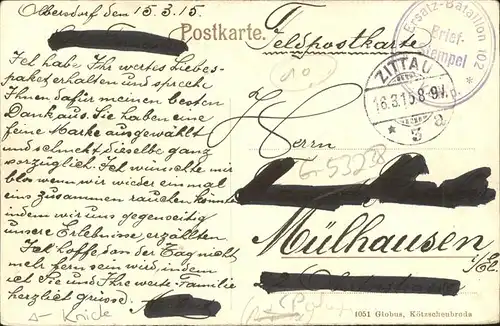 Olbersdorf dem 15.3.15.
Ich habe Ihr wertes Liebes-
paket erhalten und spreche
Ihnen dafür meinen besten
Dank aus. Sie haben eine
feine Marke ausgewählt
und schmekt dieselbe ganz
vorzüglich. Ich wünschte mir
blos wenn wir wieder einmal
uns zusammen rauchen könnten
indem wir uns gegenseitig
unsere Erlebnisse erzählten.
Ich hoffe das der Tag nicht
mehr fern sein wird, indem
ich Sie und Ihre werte Familie
herzlich grüsse.
Postkarte.
Feldpostkarte
Ersatz-Bataillon 102
Brief-
stempel
ZITTAU
16.3.15.8-9V.
* 3 a
10
Herrn
G-53238
Mülhausen
i/Els
1051 Globus, Kötzschenbroda